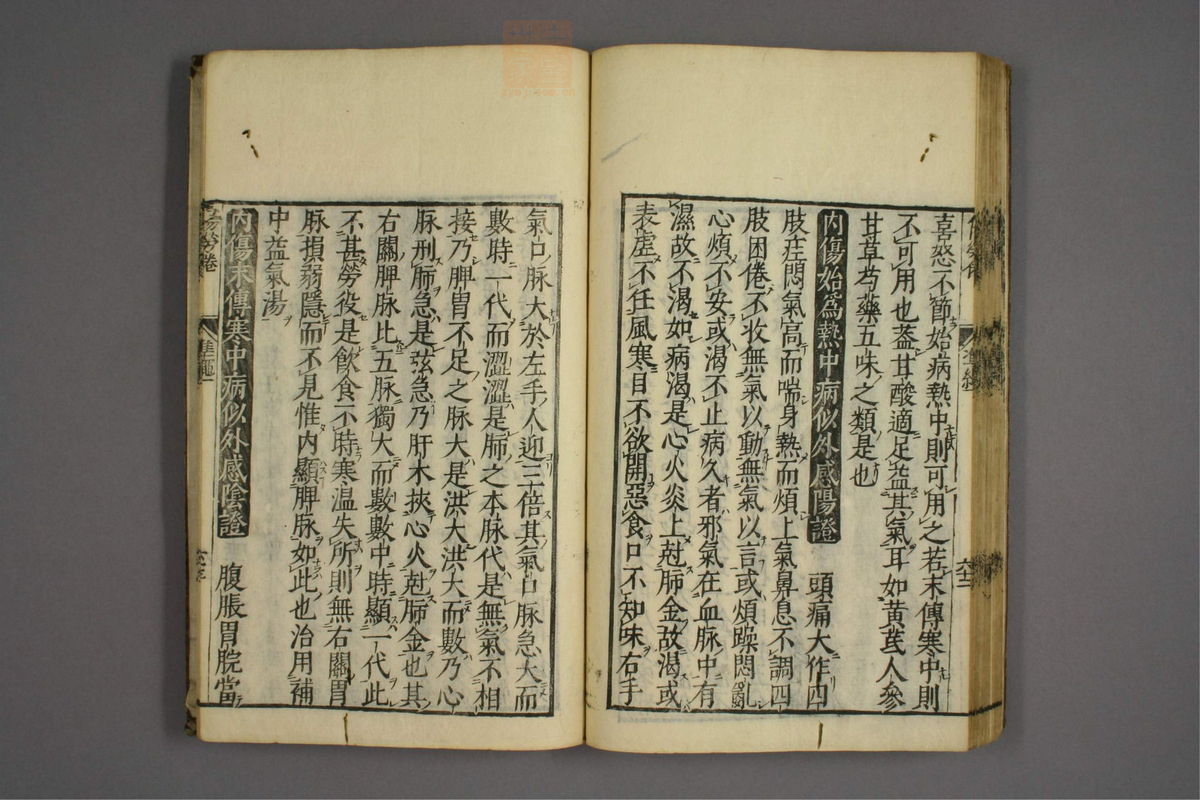 喜怒不節始病熱中則可用之若末傳寒中則
不可用也葢甘酸適足益其氣耳如黃茋人參
甘草芍藥五味之類是也
內傷始爲熱中病似外感陽證 頭痛大作四
肢疰悶氣高而喘身熱而煩上氣鼻息不調四
肢困倦不收無氣以動無氣以言或煩躁悶亂
心煩不安或渴不止病久者邪氣在血脉中有
濕故不渴如病渴是心火炎上尅肺金故渴或
表虛不任風寒目不欲開惡食口不知味右手
氣口脉大於左手人迎三倍其氣口脉急大而
數時一代而澀澀是肺之本脉代是無氣不相
接乃脾胃不足之脉大是洪大洪大而數乃心
脉刑肺急是弦急乃肝木挾心火尅肺金也其
右關脾脉比五脉獨大而數數中時顯一代此
不甚勞役是飲食不時寒温失所則無右關胃
脉損弱隱而不見惟內顯脾脉如此也治用補
中益氣湯
內傷末傳寒中病似外感陰證 腹脹胃脘當